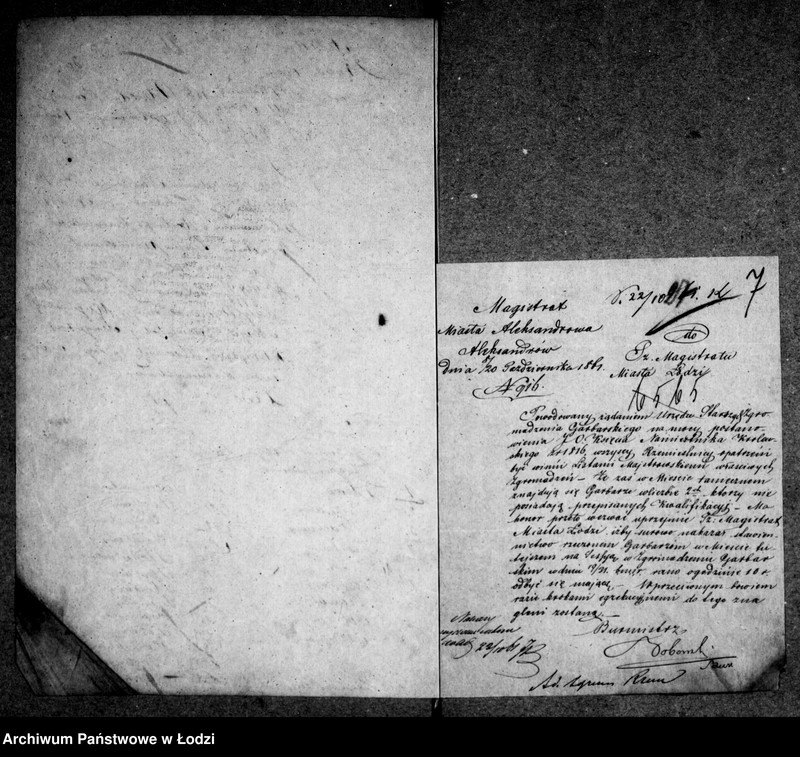 7
Magistrat
Miasta Aleksandrowa
Aleksandrów
Dnia 8/20 Października 1861
N 916.
do
Pz. Magistratu
Miasta Łodzi
6565
Powodowany żądaniem Urzędu Starszych Zgro
madzenia Garbarskiego na mocy postano
wienia J O Księcia Namiestnika Królew
skiego z r 1816, wszyscy Rzemieślnicy opatrzeni
być winni Listami Majstrowskiemi właściwych
Zgromadzeń – Że zaś w Mieście tamecznem
znajdują się Garbarze w liczbie 2ch którzy nie
posiadają przepisanych Kwalifikacyi – Ma
honor przeto wezwać uprzejmie Pz. Magistrat
Miasta Łodzi iżby surowo nakazał stawien
nictwo rzeczonem Garbarzom w Mieście tu
tejszem na Sessyą w Zgromadzeniu Garbar
skim w dniu 19/31. bm r. rano o godzinie 10 r.
odbyć się mającą – W przeciwnym bowiem
razie krokami egzekucyjnemi do tego zna
gleni zostaną
Burmistrz
Ad. Zgrom Rzem
Archiwum Państwowe w Łodzi